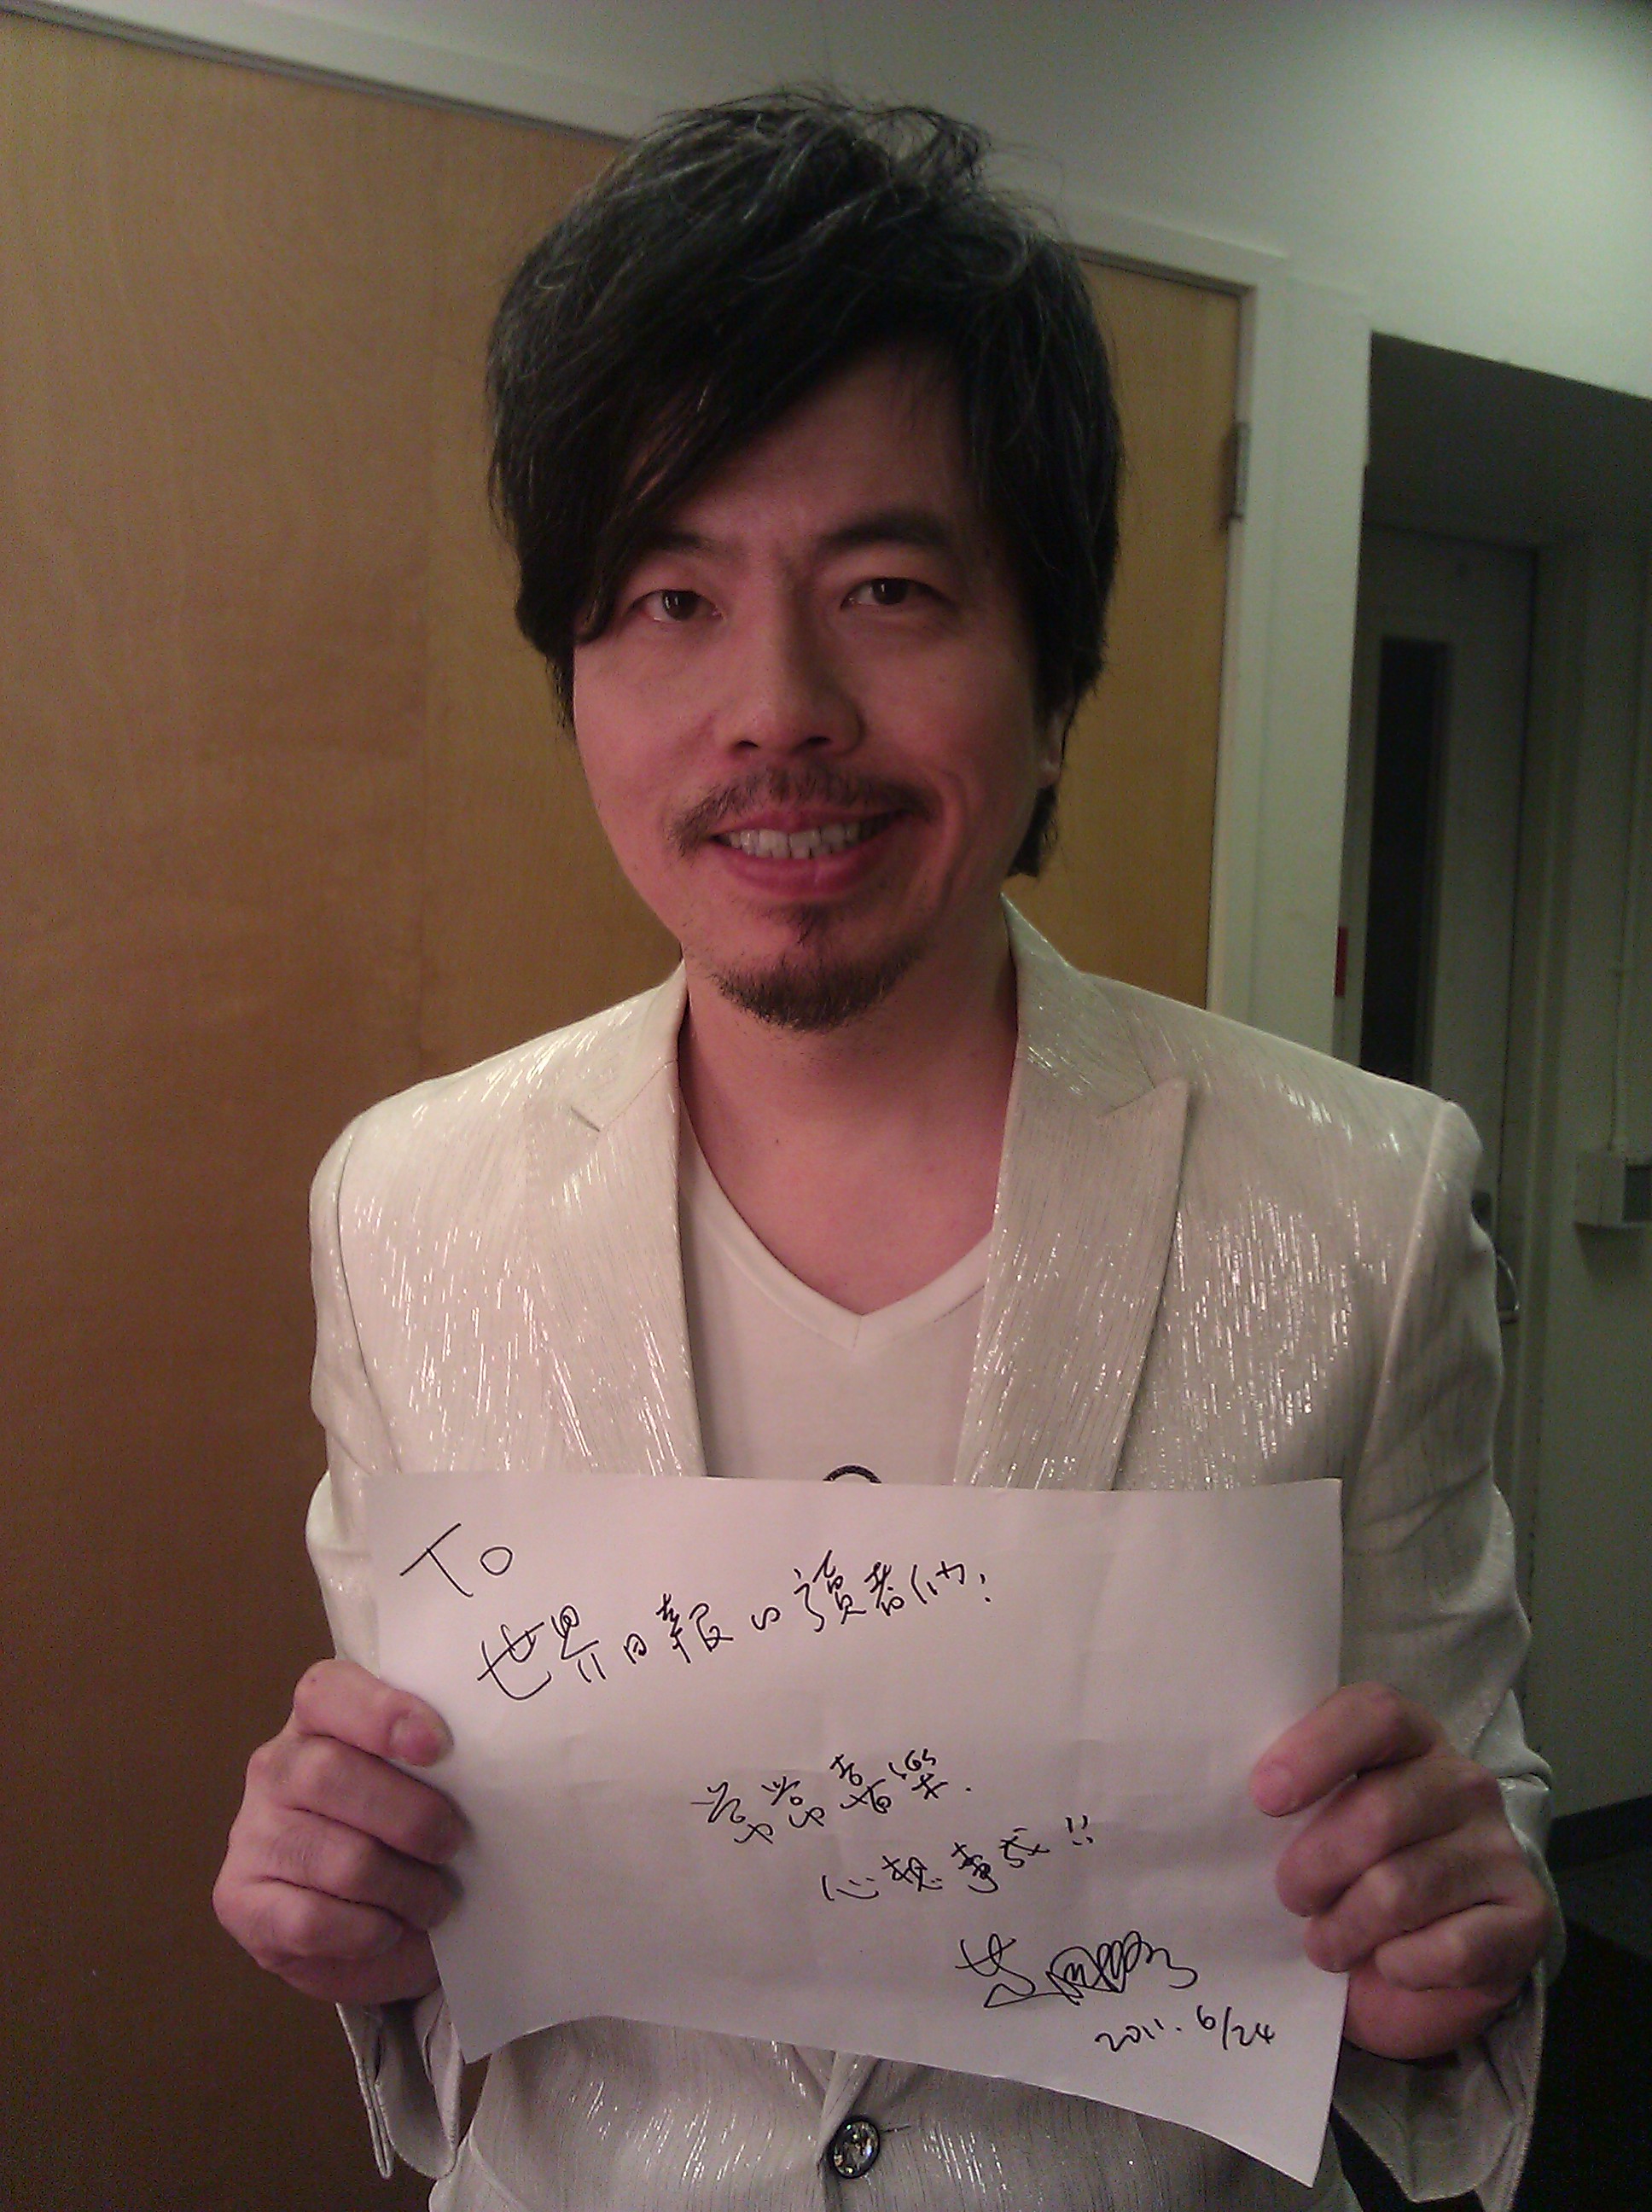 To
世界日報的讀者們:
常常喜樂.
心想事成!!
2011. 6/24